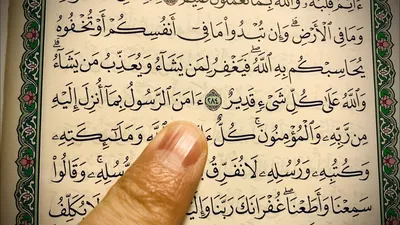 ءَاثِمٌ قَلْبُهُ وَاللَّهُ بِمَا تَعْمَلُونَ عَلِيمٌ
وَمَا فِي الْأَرْضِ وَإِن تُبْدُوا مَا فِي أَنفُسِكُمْ أَوْ تُخْفُوهُ
يُحَاسِبْكُم بِهِ اللَّهُ فَيَغْفِرُ لِمَن يَشَاءُ وَيُعَذِّبُ مَن يَشَاءُ
وَاللَّهُ عَلَىٰ كُلِّ شَيْءٍ قَدِيرٌ ٢٨٤ ءَامَنَ الرَّسُولُ بِمَا أُنزِلَ إِلَيْهِ
مِن رَّبِّهِ وَالْمُؤْمِنُونَ كُلٌّ وَمَلَائِكَتِهِ
وَكُتُبِهِ وَرُسُلِهِ لَا نُفَرِّقُ رُسُلِهِ وَقَالُوا
سَمِعْنَا وَأَطَعْنَا غُفْرَانَكَ رَبَّنَا لَا يُكَلِّفُ